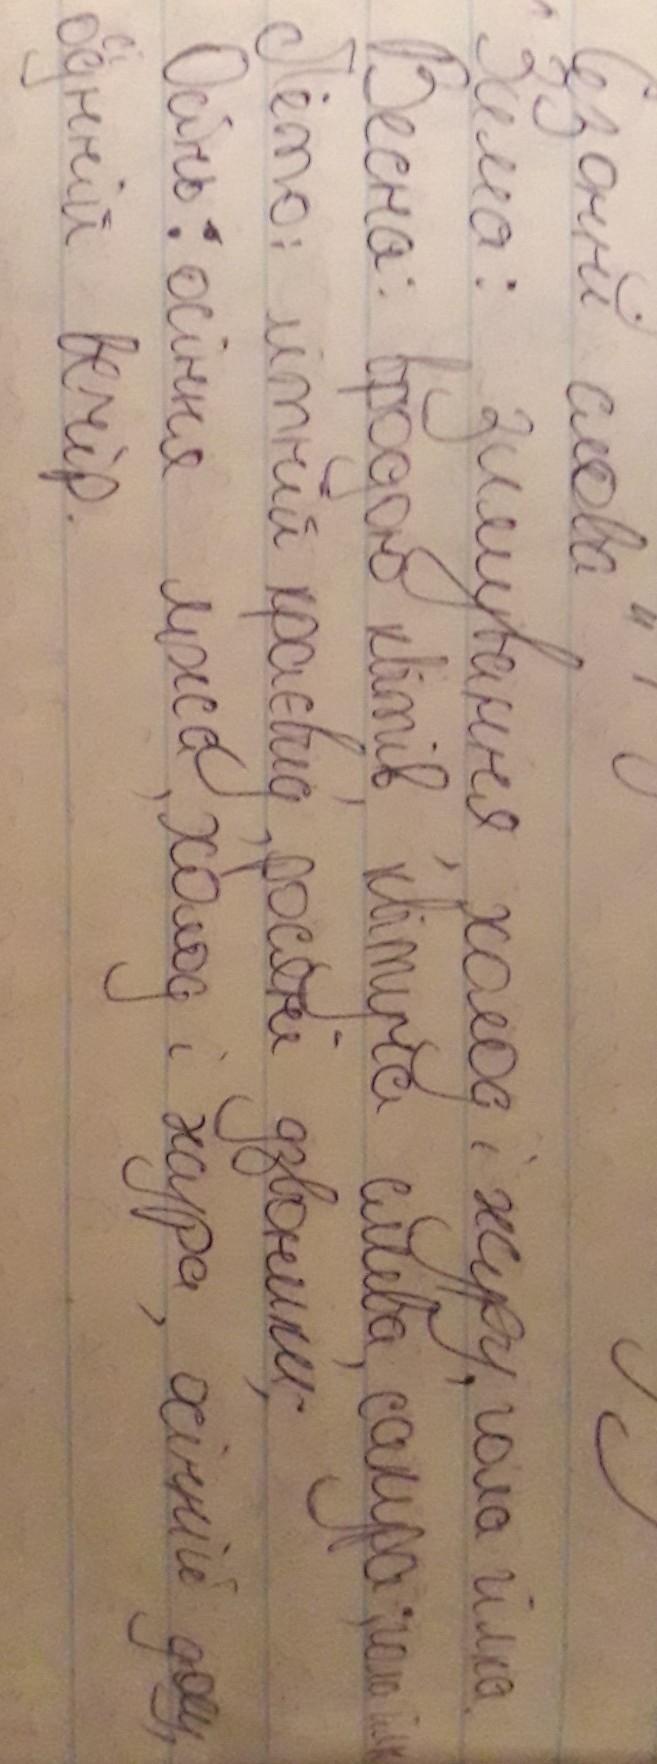 Сезонні слова"
Зима: зимування, холод і журу, гола гілка.
Весна: вродою квітів, квітуча слива, сакура, гола гілк
Літо: літній краєвид, росяні дзвоники,
Осінь: осіння імжа, холод і журa, осінній дощ,
осінній вечір.